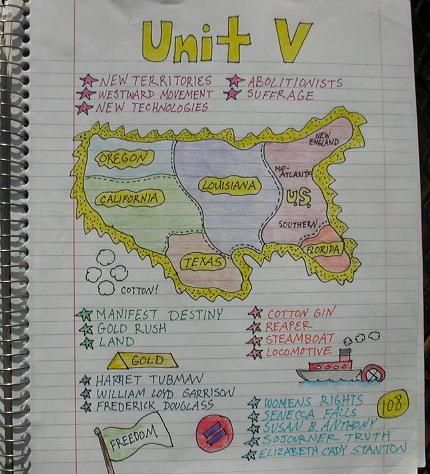 Unit V
NEW TERRITORIES
WESTWARD MOVEMENT
NEW TECHNOLOGIES
ABOLITIONISTS
SUFFRAGE
NEW ENGLAND
OREGON
MID-ATLANTIC
LOUISIANA
CALIFORNIA
U.S.
SOUTHERN
TEXAS
FLORIDA
COTTON!
MANIFEST DESTINY
GOLD RUSH
LAND
GOLD
COTTON GIN
REAPER
STEAMBOAT
LOCOMOTIVE
HARRIET TUBMAN
WILLIAM LOYD GARRISON
FREDERICK DOUGLASS
FREEDOM
=
WOMENS RIGHTS
SENECCA FALLS
SUSAN B. ANTHONY
SOJOURNER TRUTH
ELIZABETH CADY STANTON
108